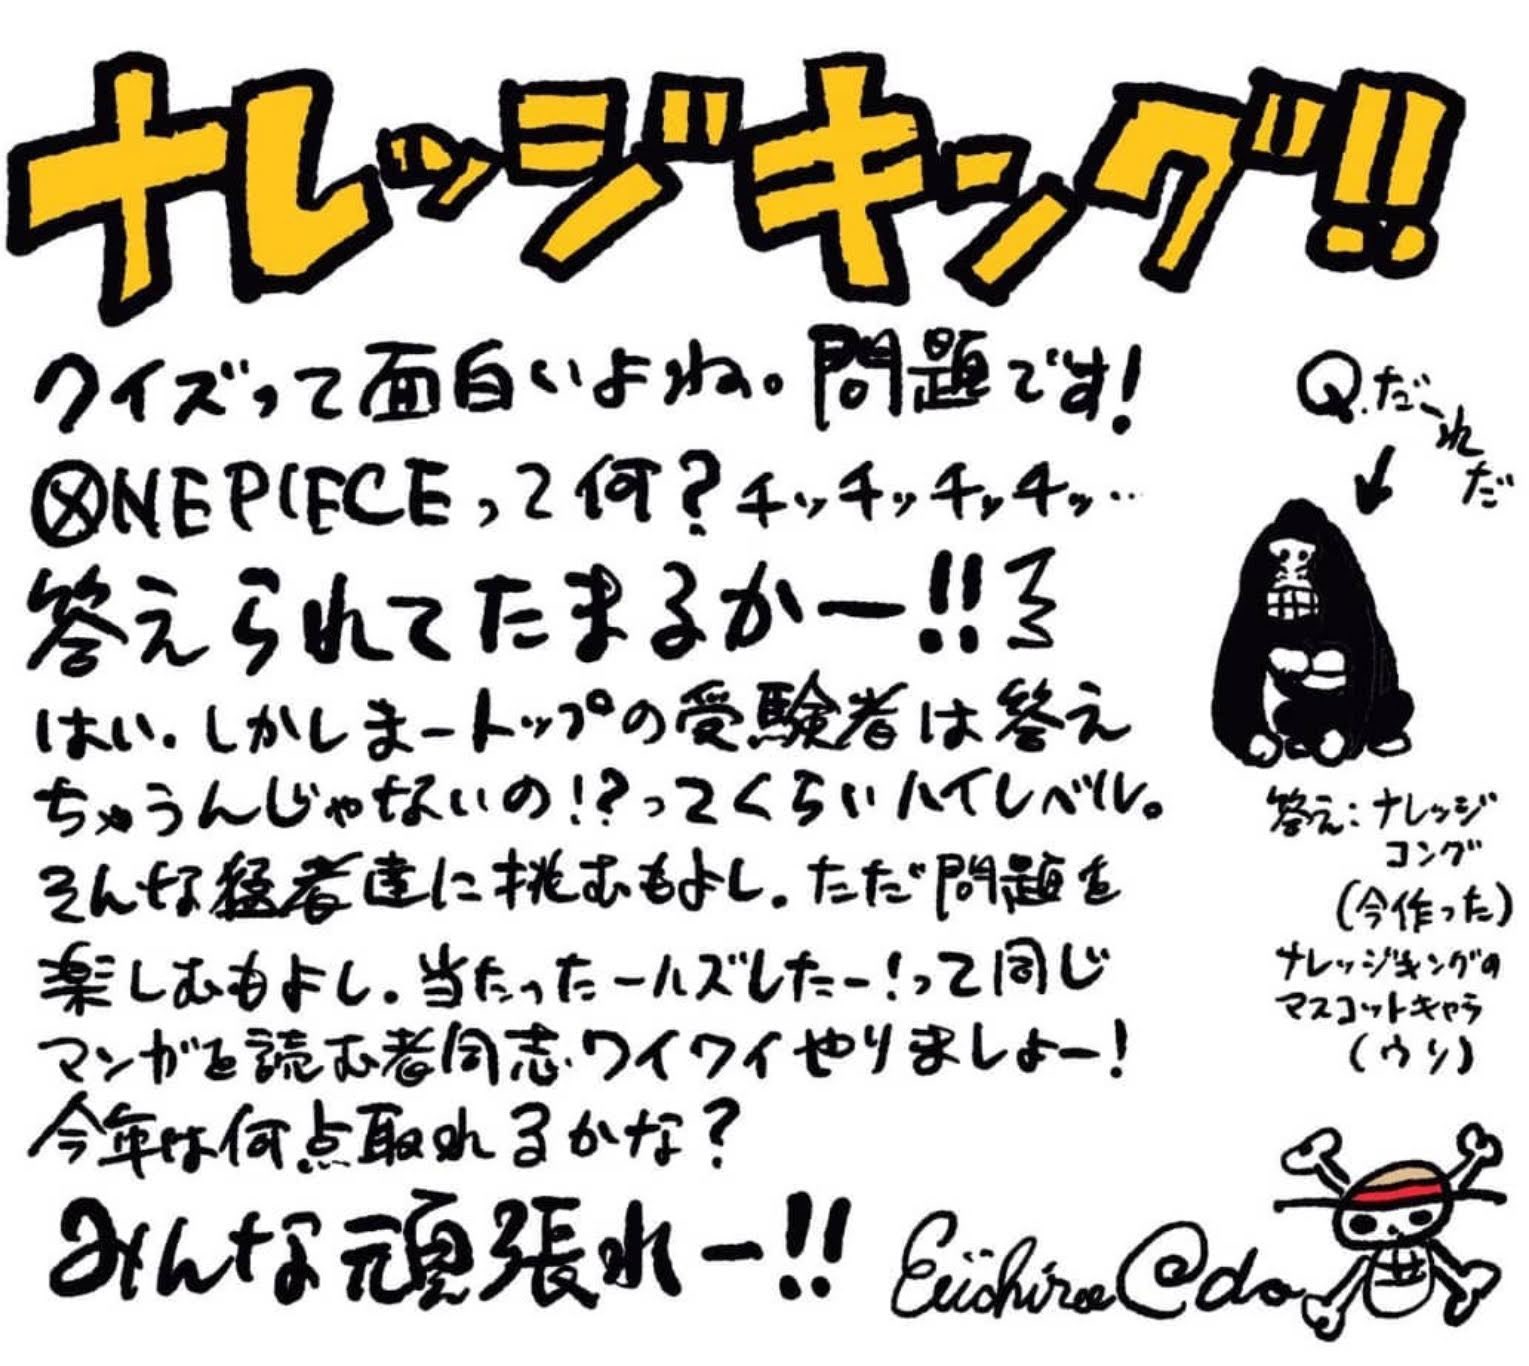 ナレッジキング!!
クイズって面白いよね。問題です!
ONE PIECEって何?チッチッチッチッ…
答えられてたまるかー!!
はい。しかしまートップの受験者は答え
ちゃうんじゃないの!?ってくらいハイレベル。
そんな猛者達に挑むもよし。ただ問題を
楽しむもよし。当たったールズしたー!って同じ
マンガを読む者同志ワイワイやりましょー!
今年は何点取れるかな?
みんな頑張れー!!
Eiichiro Oda
Q.だーれだ
答え:ナレッジ
コング
(今作った)
ナレッジキングの
マスコットキャラ
(ウソ)